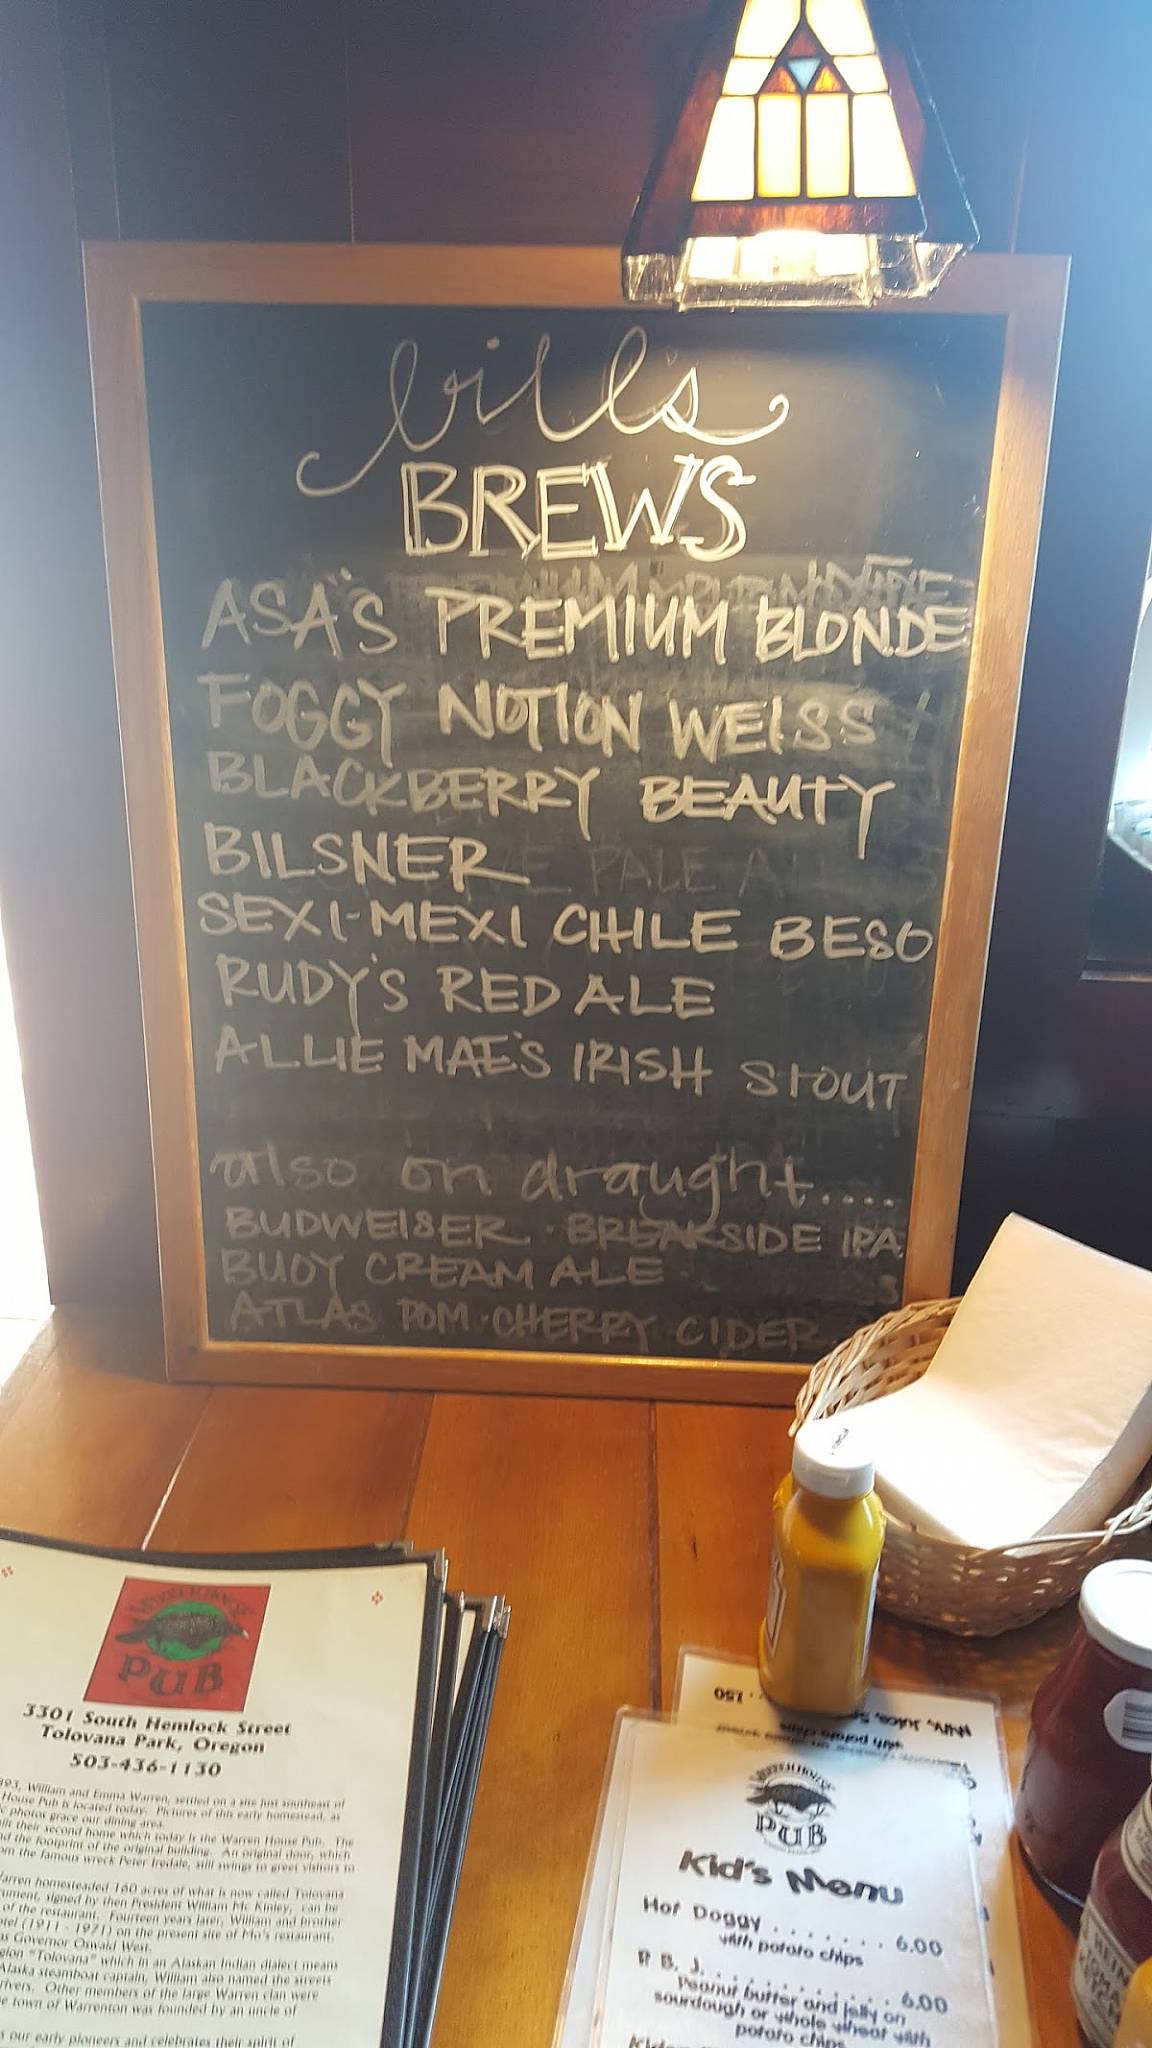 bill's
BREWS
ASA'S PREMIUM BLONDE
FOGGY NOTION WEISS
BLACKBERRY BEAUTY
BILSNER
SEXI-MEXI CHILE BESO
RUDY'S RED ALE
ALLIE MAE'S IRISH STOUT
also on draught....
BUDWEISER · BREAKSIDE IPA
BUOY CREAM ALE
ATLAS POM·CHERRY CIDER
WARREN HOUSE
PUB
3301 South Hemlock Street
Tolovana Park, Oregon
503-436-1130
93, William and Emma Warren, settled on a site just southeast of
House Pub is located today. Pictures of this early homestead, as
photos grace our dining area.
ilt their second home which today is the Warren House Pub. The
nd the footprint of the original building. An original door, which
om the famous wreck Peter Iredale, still swings to greet visitors to
arren homesteaded 160 acres of what is now called Tolovana
ument, signed by then President William Mc Kinley, can be
of the restaurant. Fourteen years later, William and brother
otel (1911 - 1971) on the present site of Mo's restaurant.
as Governor Oswald West.
gion "Tolovana" which in an Alaskan Indian dialect means
Alaska steamboat captain, William also named the streets
rivers. Other members of the large Warren clan were
e town of Warrenton was founded by an uncle of
s our early pioneers and celebrates their spirit of
Milk, Juice,
with potato chips
WARREN HOUSE
PUB
Kid's Menu
Hot Doggy . . . . . . . 6.00
with potato chips
P. B. J. . . . . . . . . . 6.00
Peanut butter and jelly on
sourdough or whole wheat with
potato chips